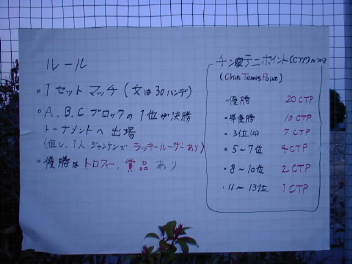 ルール
・1セットマッチ (女は30ハンデ)
・A、B、Cブロックの1位が決勝
トーナメントへ出場
(但し、1人ジャンケンでラッキールーザーあり)
・優勝はトロフィー、賞品あり
テニスポイント(CTP)
・優勝 20CTP
・準優勝 10CTP
・3位 7CTP
・5~7位 4CTP
・8~10位 2CTP
・11~13位 1CTP